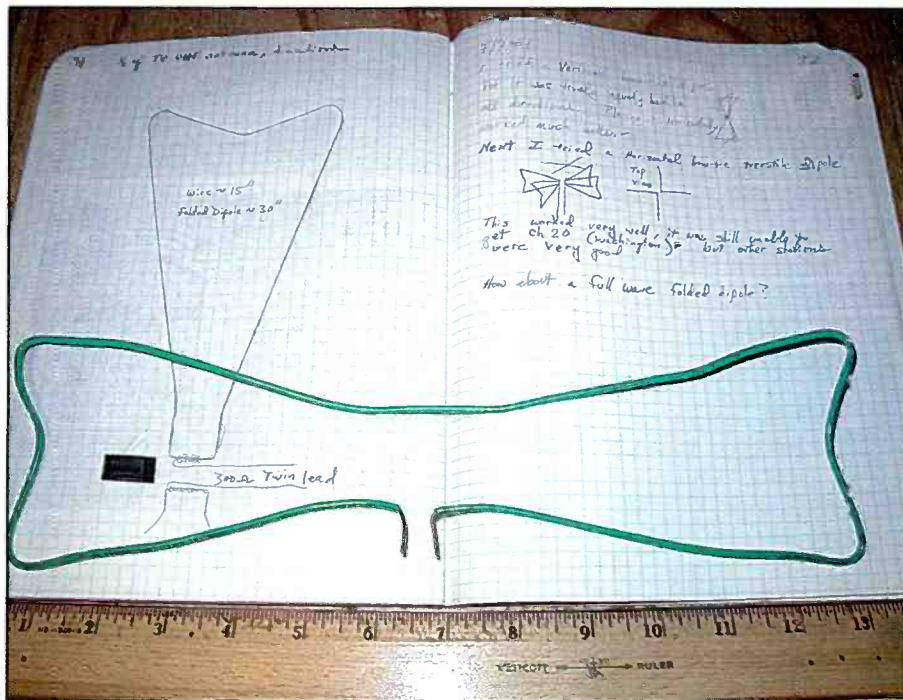 TV UHF antenna,
Wire ~ 15"
Folded Dipole ~ 30"
300Ω Twin lead
I tried a Vertical
but it was
all directions.
worked much better
Next I tried a Horizontal bow-tie turnstile Dipole
Top
View
This worked very well, it was still unable to
get ch 20 (Washington) but other stations
were very good
How about a full wave folded dipole?
1 2 3 4 5 6 7 8 9 10 11 12 13
RULER